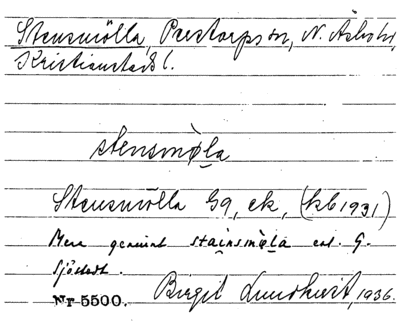 Stensmölla, Perstorps sn, N. Åsbohs,
Kristianstads l.
stensmø̀la
Stensmölla Gg, ek, (kb 1931)
Mera genuint stainsmøla enl. G.
Sjöstedt.
Nr 5500. Birgit Lundkvist, 1936.